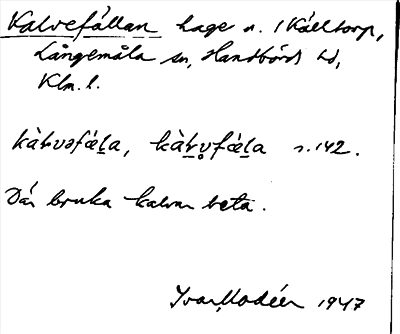 Kalvefällan hage n. / Källtorp,
Långemåla sn, Handbörds hd,
Klm. l.
kàḷvəfæḷa, kàḷv̥fæḷa s. 142.
Där bruka kalvar beta.
Ivar Modéer 1947